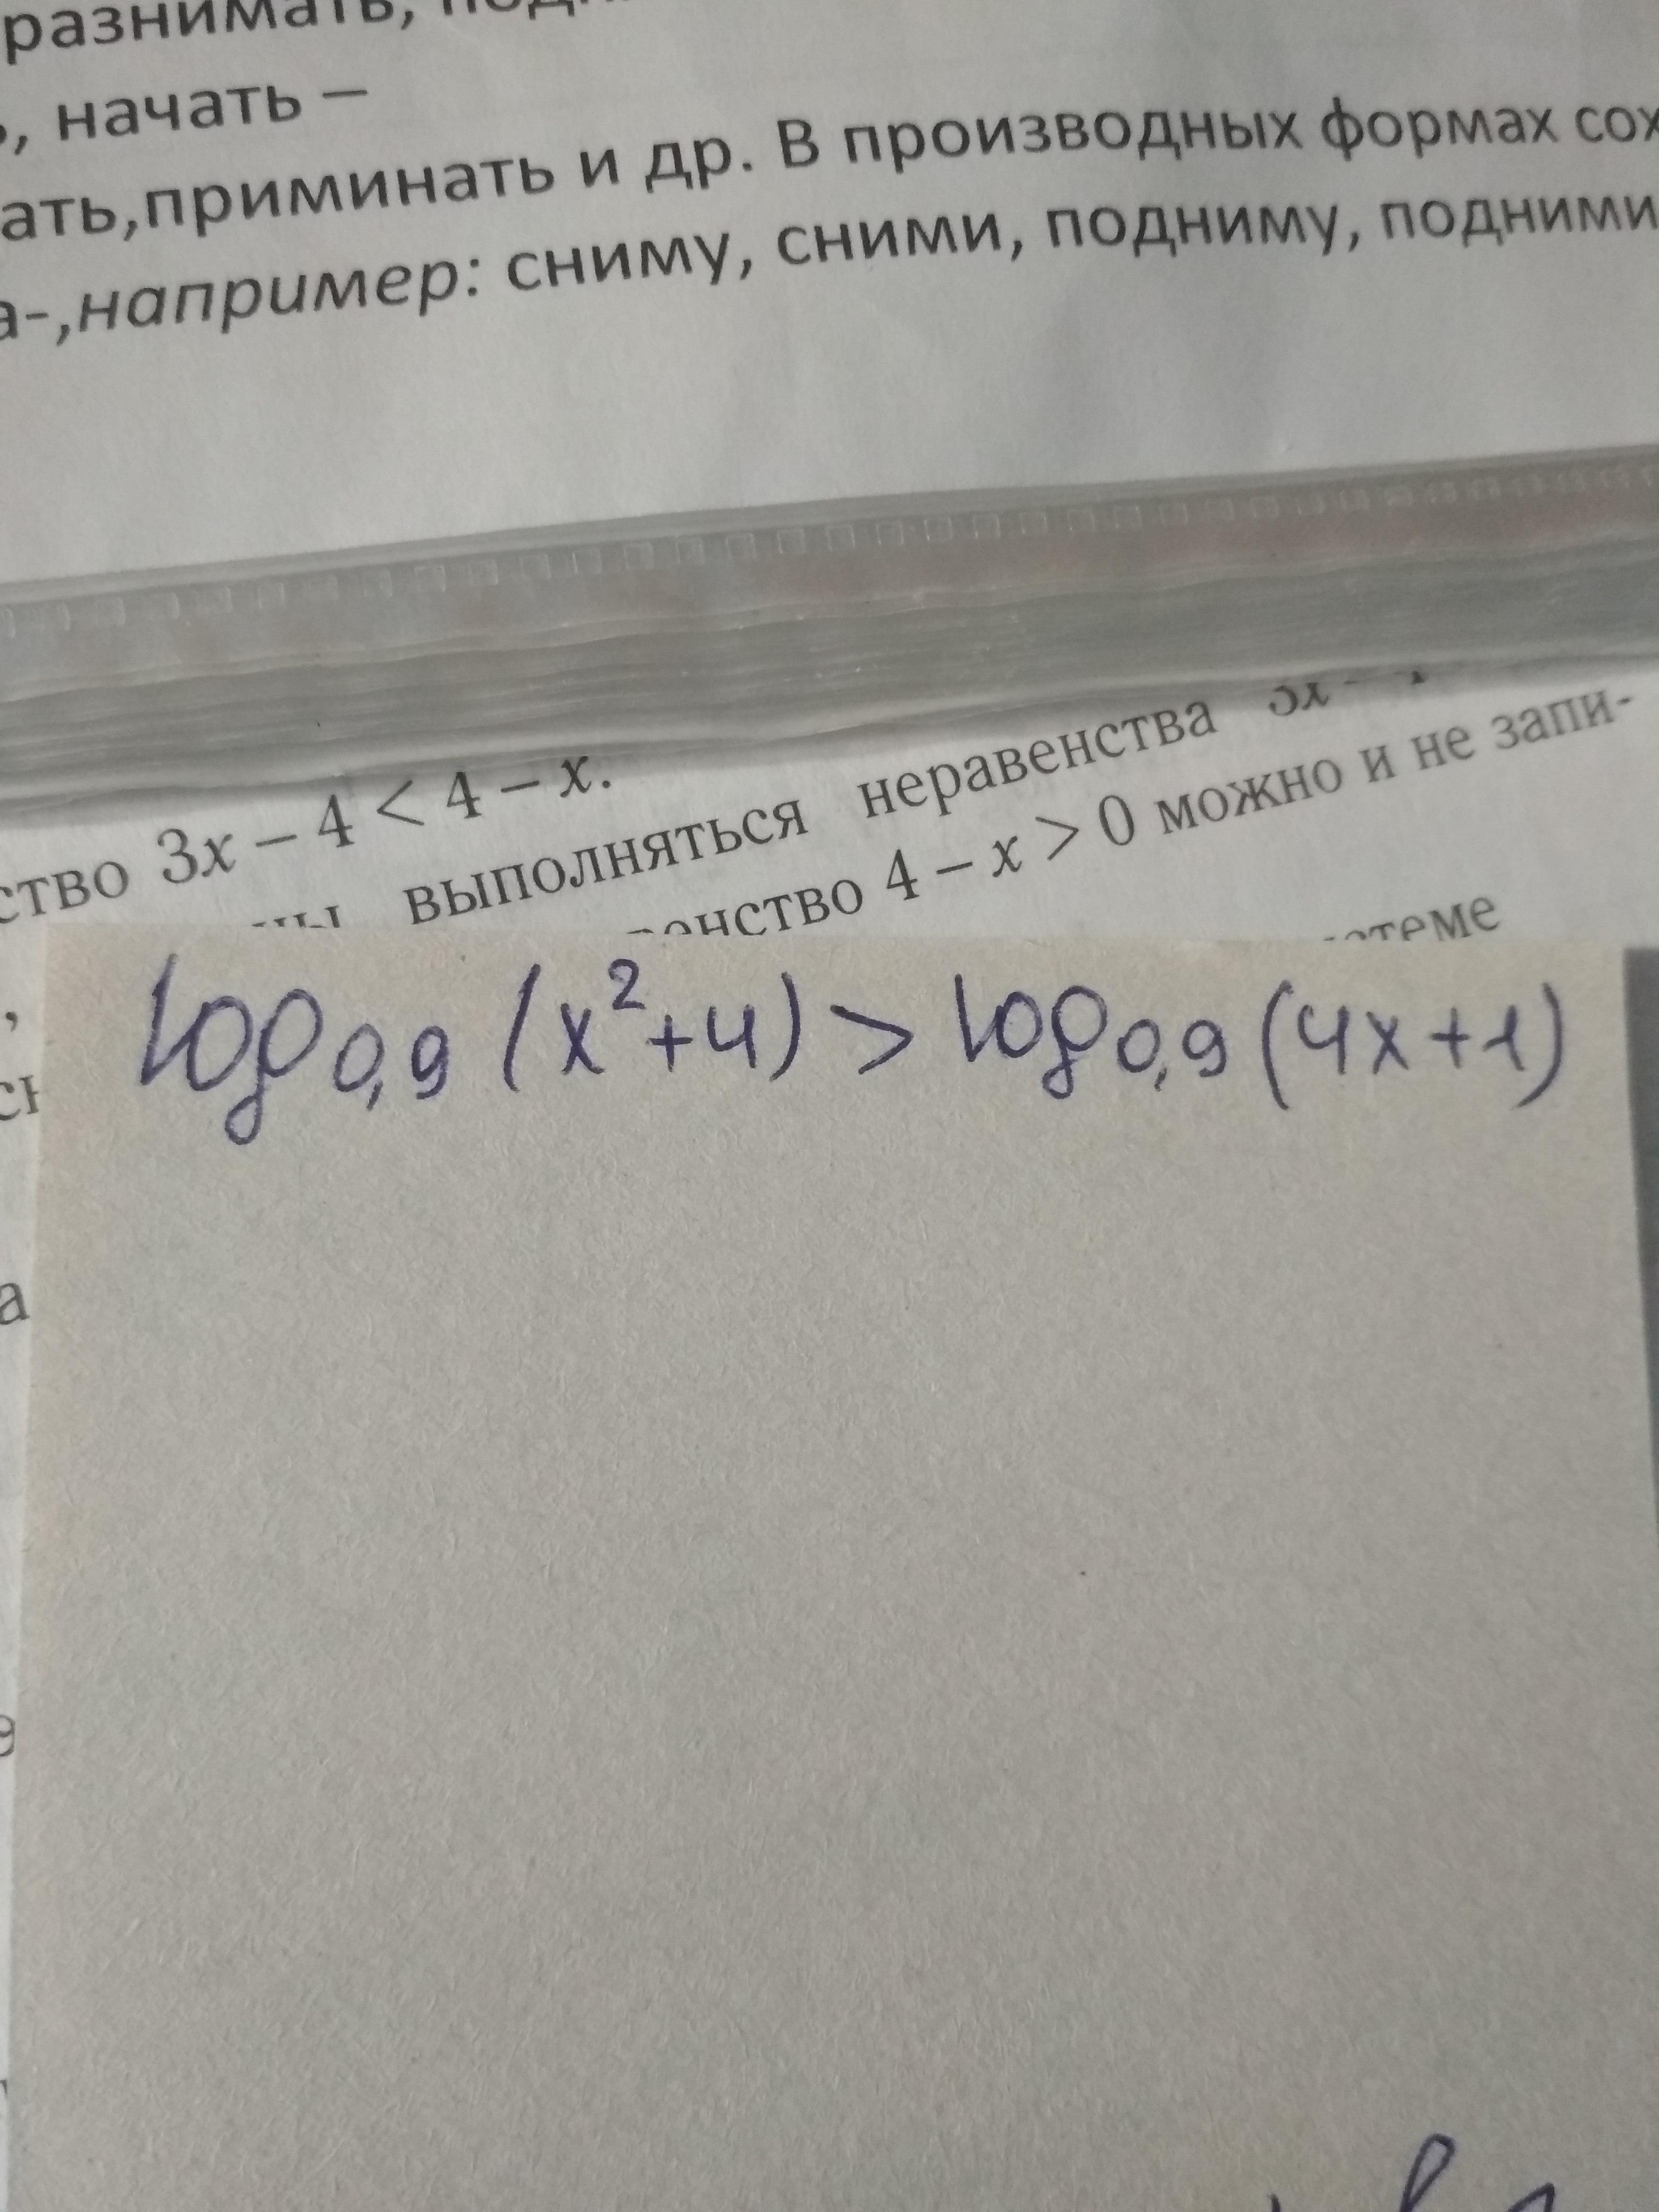 разнимать,
, начать –
ать,приминать и др. В производных формах сох
а-,например: сниму, сними, подниму, подними
ство 3x – 4 < 4 – x.
выполняться неравенства 3x –
4 – x > 0 можно и не запи-
log₀,₉ (x²+4) > log₀,₉ (4x+1)
а